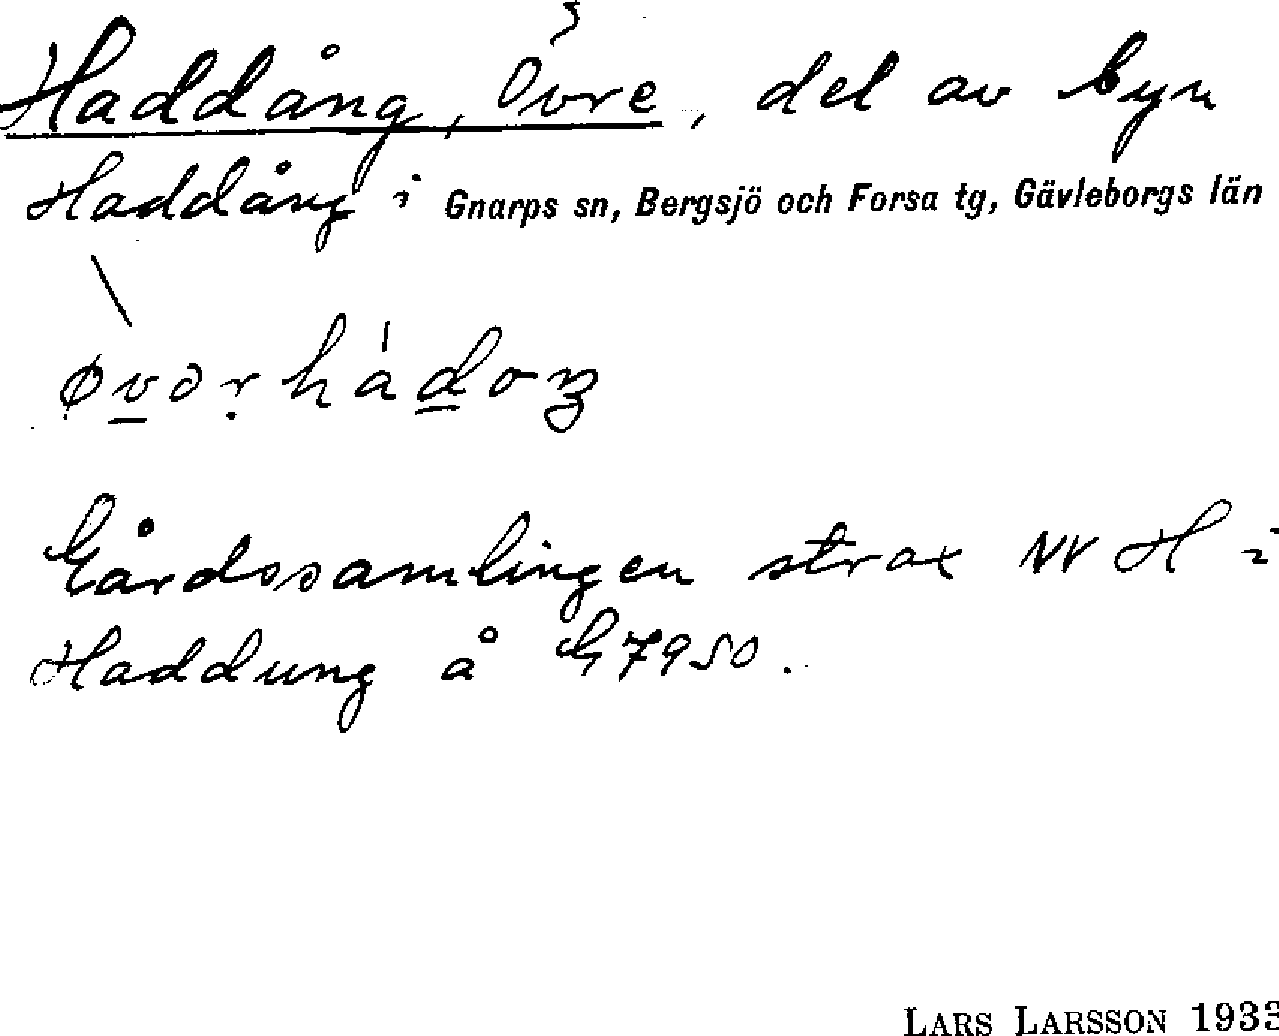 Haddång, Övre, del av byn
Haddång i Gnarps sn, Bergsjö och Forsa tg, Gävleborgs län
Gårdssamlingen strax NV H i
Haddung å G7950.
LARS LARSSON 1933